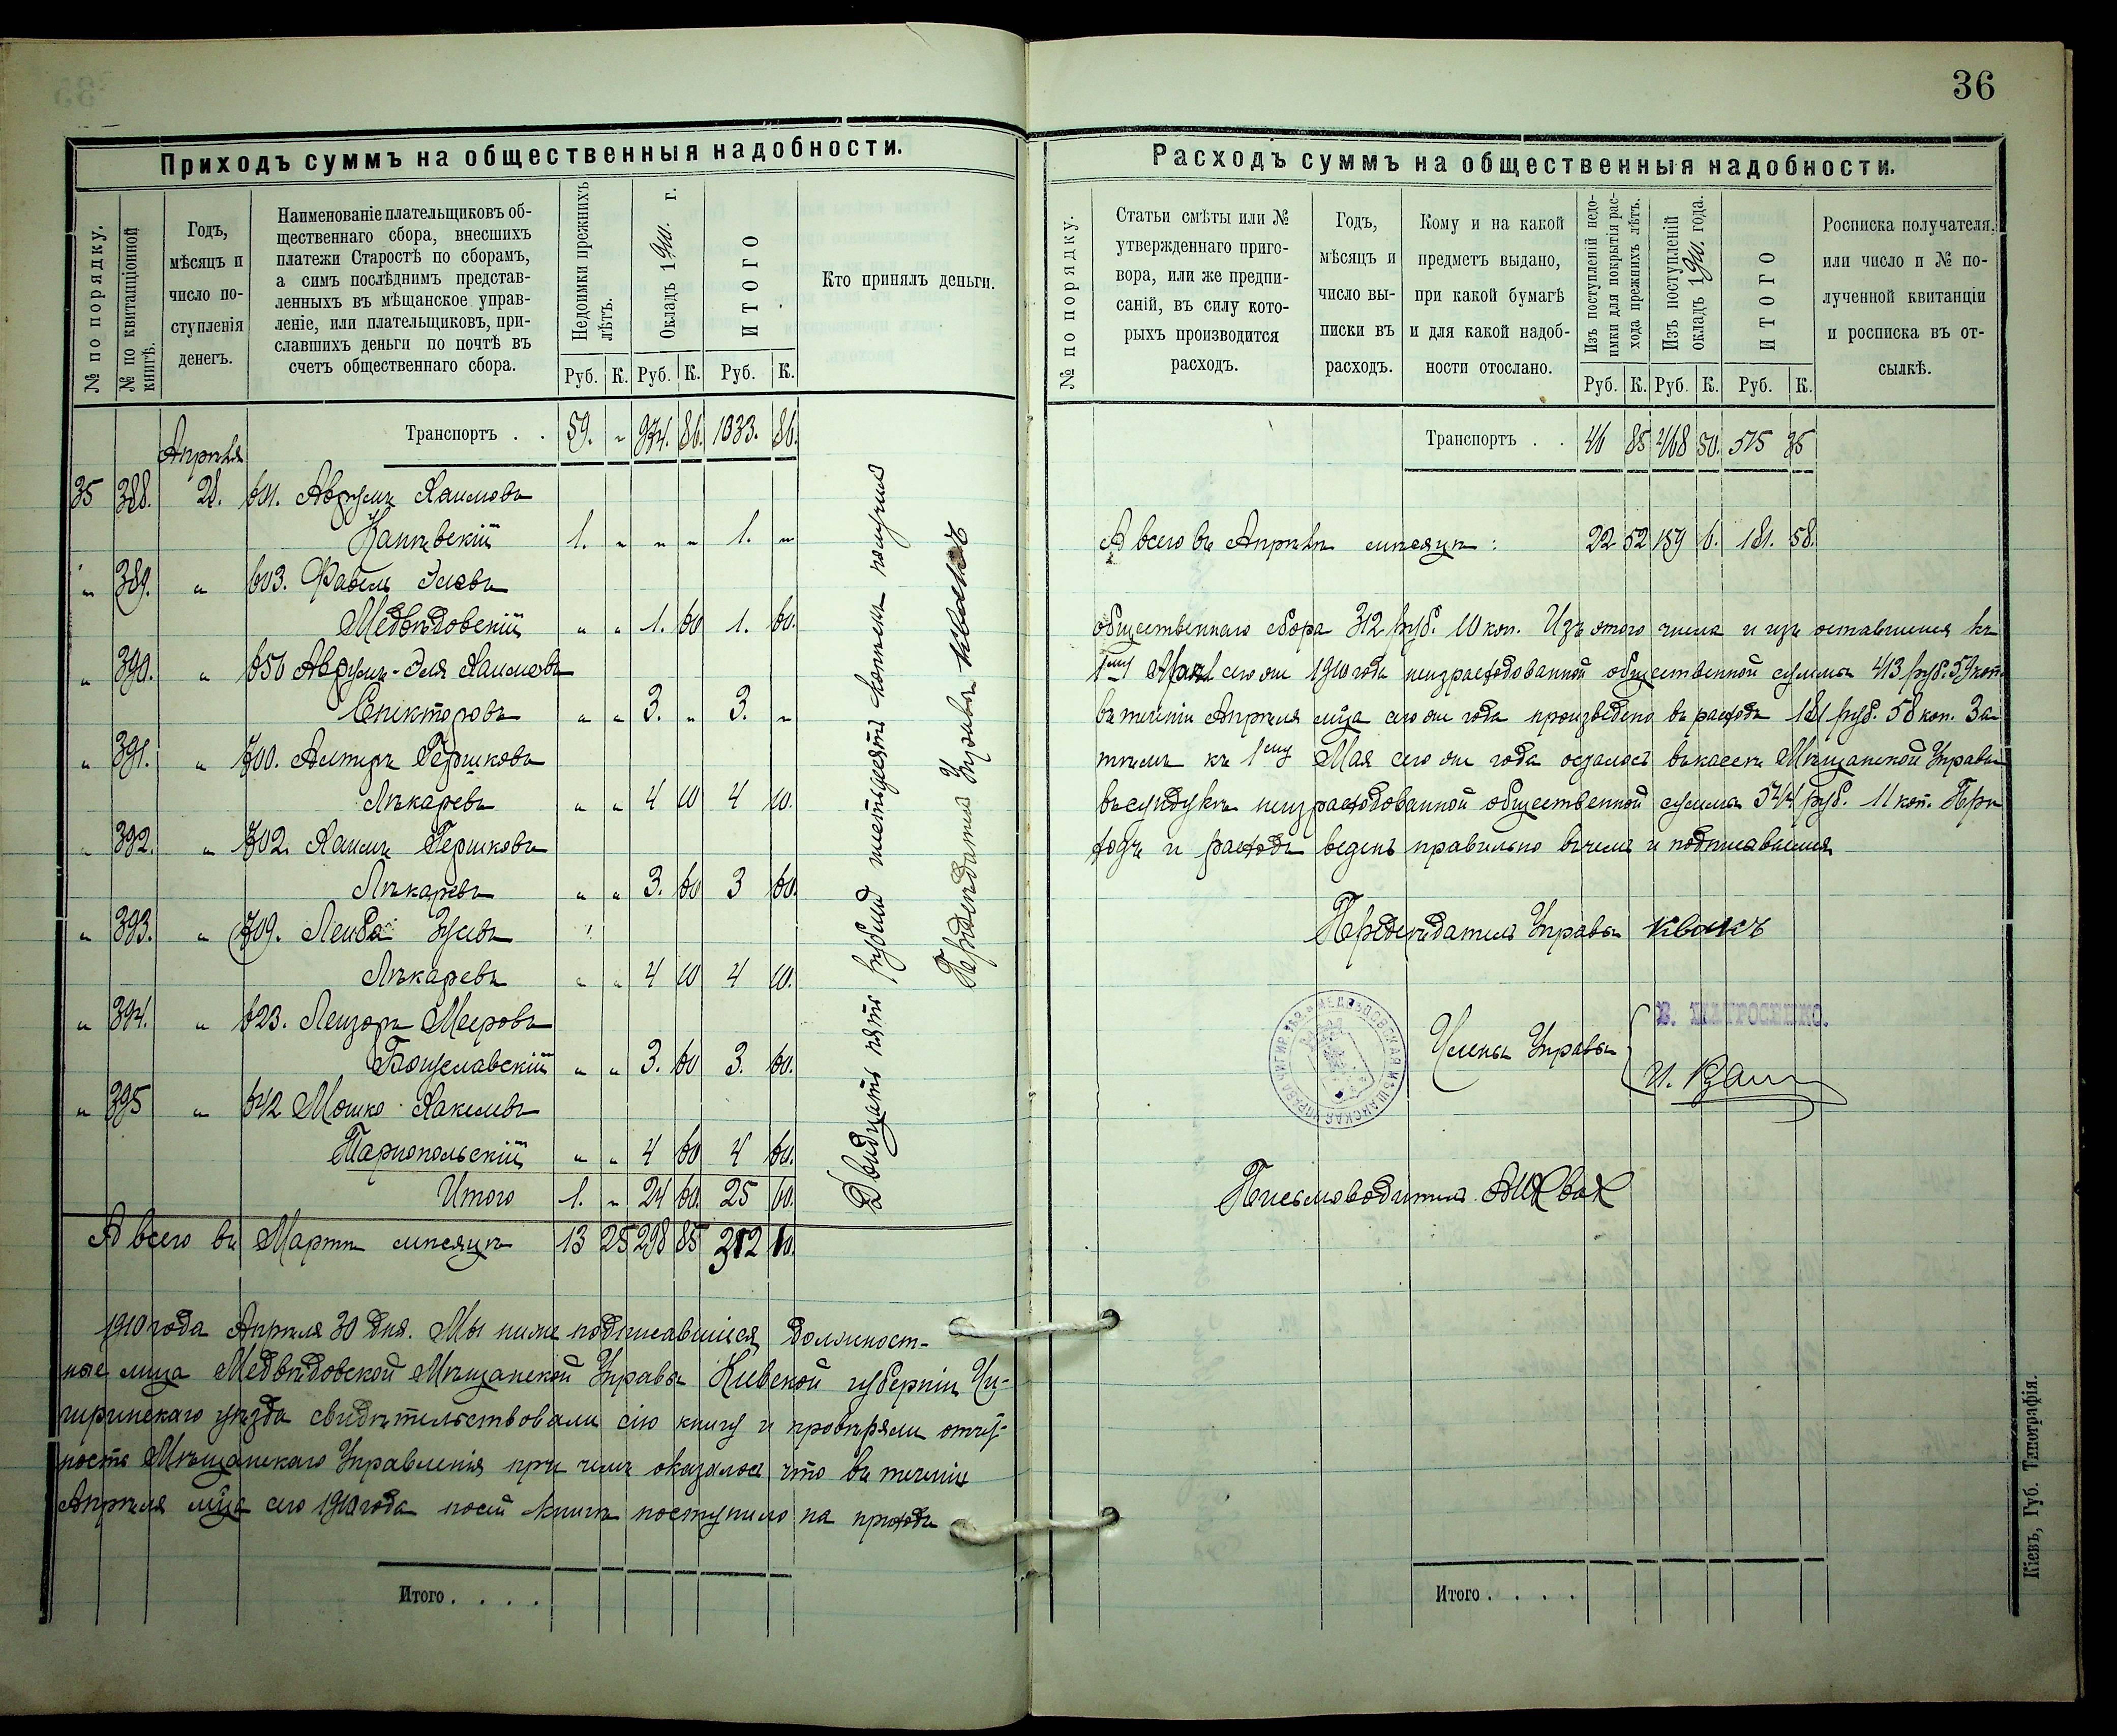 36
Приходъ суммъ на общественныя надобности.
№ по порядку.
№ по квитанціонной
книгѣ.
Годъ,
мѣсяцъ и
число по-
ступленія
денегъ.
Наименованіе плательщиковъ об-
щественнаго сбора, внесшихъ
платежи Старостѣ по сборамъ,
а симъ послѣднимъ представ-
ленныхъ въ мѣщанское управ-
леніе, или плательщиковъ, при-
славшихъ деньги по почтѣ въ
счетъ общественнаго сбора.
Недоимки прежнихъ
лѣтъ.
Окладъ 1910. г.
ИТОГО
Кто принялъ деньги.
Руб. К. Руб. К. Руб. К.
Транспортъ . . 59. " 974. 86. 1033. 86.
Апрѣля
35 388. 28. 601. Аврумъ Хаимовъ
Каневскій 1. " " " 1. "
" 389. " 603. Файвель Элевъ
Медвѣдовскій " " 1. 60 1. 60.
" 390. " 656 Аврумъ-Эля Хаимовъ
Спекторовъ " " 3. " 3. "
" 391. " 700. Алтеръ Гершковъ
Лѣкаревъ " " 4 10 4 10.
" 392. " 702. Хаимъ Гершковъ
Лѣкаревъ " " 3. 60 3 60.
" 393. " 709. Лейба Зусевъ
Лѣкаревъ " " 4 10 4 10.
" 394. " 623. Лейзоръ Мееровъ
Богуславскій " " 3. 60 3. 60.
" 395 " 642 Мошко
Тарнопольскій " " 4 60 4 60.
Итого 1. " 24 60. 25 60.
А всего въ Мартѣ мѣсяцѣ 13 25 298 85 312 10.
Двадцать пять рублей шестьдесятъ копѣекъ получилъ
Предсѣдатель Управы Квакъ
1910 года Апрѣля 30 дня. Мы ниже подписавшіеся должност-
ные лица Медвѣдовской Мѣщанской Управы Кіевской губерніи Чи-
гиринскаго уѣзда свидѣтельствовали сію книгу и провѣряли отчет-
ность Мѣщанскаго Управленія при чемъ оказалось что въ теченіе
Апрѣля м-ца сего 1910 года посей книгѣ поступило на приходъ
Итого . . . .
Расходъ суммъ на общественныя надобности.
№ по порядку.
Статьи смѣты или №
утвержденнаго приго-
вора, или же предпи-
саній, въ силу кото-
рыхъ производится
расходъ.
Годъ,
мѣсяцъ и
число вы-
писки въ
расходъ.
Кому и на какой
предметъ выдано,
при какой бумагѣ
и для какой надоб-
ности отослано.
Изъ поступленій недо-
имки для покрытія рас-
хода прежнихъ лѣтъ.
Изъ поступленій
окладъ 1910. года.
ИТОГО
Росписка получателя,
или число и № по-
лученной квитанціи
и росписка въ от-
сылкѣ.
Руб. К. Руб. К. Руб. К.
Транспортъ . . 46 85 468 50. 515 35
А всего въ Апрѣлѣ мѣсяцѣ: 22 52 159 6. 181. 58.
общественнаго сбора 312 руб. 10 коп. Изъ этого числа и изъ оставшихся къ
1му сего же 1910 года неизрасходованной общественной суммы 413 руб. 59 коп.
въ теченіи Апрѣля м-ца сего же года произведено въ расходъ 181 руб. 58 коп. За
тѣмъ къ 1му Мая сего же года осталось въ кассѣ Мѣщанской Управы
въ сундукѣ неизрасходованной общественной суммы 544 руб. 11 коп. При
ходъ и расходъ веденъ правильно въ чемъ и подписавшіеся
Предсѣдатель Управы Квакъ
Члены Управы
МЕДВѢДОВСКАЯ МѢЩАНСКАЯ УПРАВА ЧИГИР.
Письмоводитель
Итого . . . .
Кіевъ, Губ. Типографія.